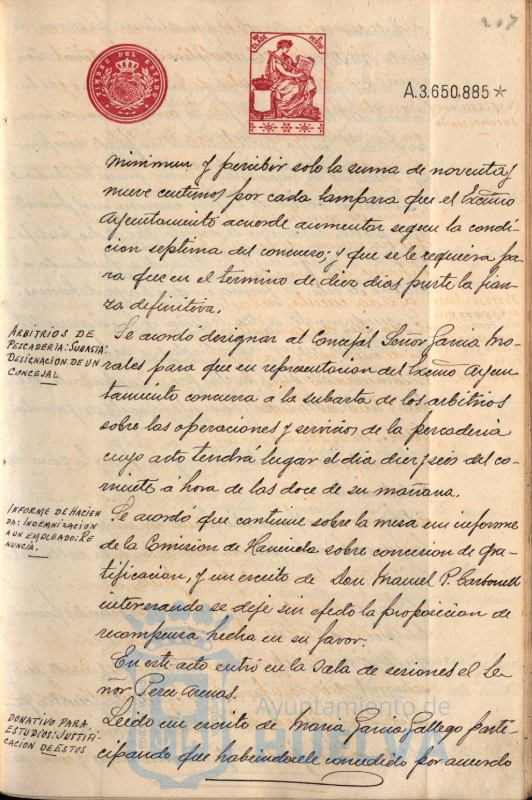 207
TIMBRE DEL ESTADO
A.3.650.885*
minimun y percibir solo la suma de noventa y
nueve centimos por cada lampara que el Excmo
Ayuntamiento acuerde aumentar segun la condi
cion septima del concurso; y que se le requiera pa
ra que en el termino de diez dias preste la fian
za definitiva.
ARBITRIOS DE
PESCADERIA: SUBASTA:
DESIGNACION DE UN
CONCEJAL
Se acordó designar al Concejal Señor Garcia Mo
rales para que en representacion del Excmo Ayun
tamiento concurra á la subasta de los arbitrios
sobre las operaciones y servicios de la pescaderia
cuyo acto tendrá lugar el dia diez y seis del co
rriente á hora de las doce de su mañana.
INFORME DE HACIEN
DA: INDEMNIZACION
A UN EMPLEADO: RE
NUNCIA.
Se acordó que continue sobre la mesa un informe
de la Comision de Hacienda sobre concesion de gra
tificacion, y un escrito de Don Manuel P. Carbonell
interesando se deje sin efecto la proposicion de
recompensa hecha en su favor.
En este acto entró en la Sala de sesiones el Se
ñor Perez Arenas.
DONATIVO PARA
ESTUDIOS: JUSTIFI
CACION DE ESTOS
Leido un escrito de Maria Garcia Gallego parte-
cipando que habiendosele concedido por acuerdo
Ayuntamiento de
HUELVA